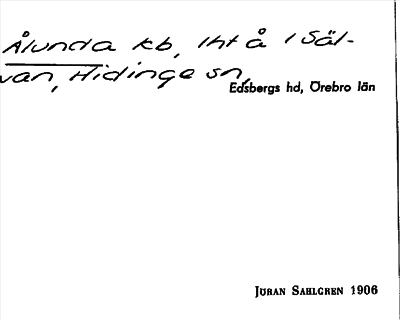 Ålunda kb, Iht å i Säl-
van, Hidinge sn,
Edsbergs hd, Örebro län
JÖRAN SAHLGREN 1906